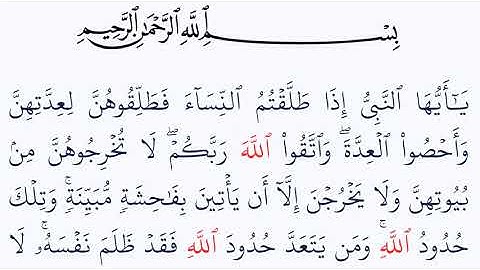 بِسْمِ ٱللَّهِ ٱلرَّحْمَٰنِ ٱلرَّحِيمِ
يَـٰٓأَيُّهَا ٱلنَّبِىُّ إِذَا طَلَّقْتُمُ ٱلنِّسَآءَ فَطَلِّقُوهُنَّ لِعِدَّتِهِنَّ
وَأَحْصُوا۟ ٱلْعِدَّةَ ۖ وَٱتَّقُوا۟ ٱللَّهَ رَبَّكُمْ ۖ لَا تُخْرِجُوهُنَّ مِنۢ
بُيُوتِهِنَّ وَلَا يَخْرُجْنَ إِلَّآ أَن يَأْتِينَ بِفَـٰحِشَةٍ مُّبَيِّنَةٍ ۚ وَتِلْكَ
حُدُودُ ٱللَّهِ ۚ وَمَن يَتَعَدَّ حُدُودَ ٱللَّهِ فَقَدْ ظَلَمَ نَفْسَهُۥ ۚ لَا